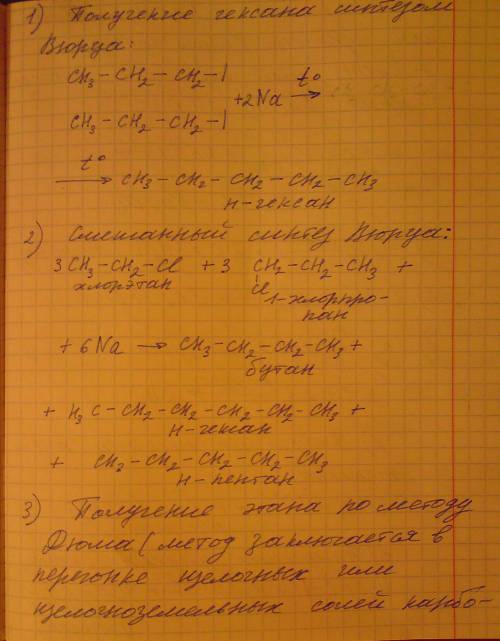 1) Получение гексана синтезом
Вюрца:
CH₃ – CH₂ – CH₂ – I
+2Na t° →
CH₃ – CH₂ – CH₂ – I
t° → CH₃ – CH₂ – CH₂ – CH₂ – CH₃
н-гексан
2) Смешанный синтез Вюрца:
3CH₃ – CH₂ – Cl + 3 CH₂ – CH₂ – CH₃ +
хлорэтан Cl 1-хлорпро-
пан
+ 6Na → CH₃ – CH₂ – CH₂ – CH₃ +
бутан
+ H₃C – CH₂ – CH₂ – CH₂ – CH₂ – CH₃ +
н-гексан
+ CH₂ – CH₂ – CH₂ – CH₂ – CH₃
н-пентан
3) Получение этана по методу
Дюма (метод заключается в
перегонке щелочных или
щелочноземельных солей карбо-